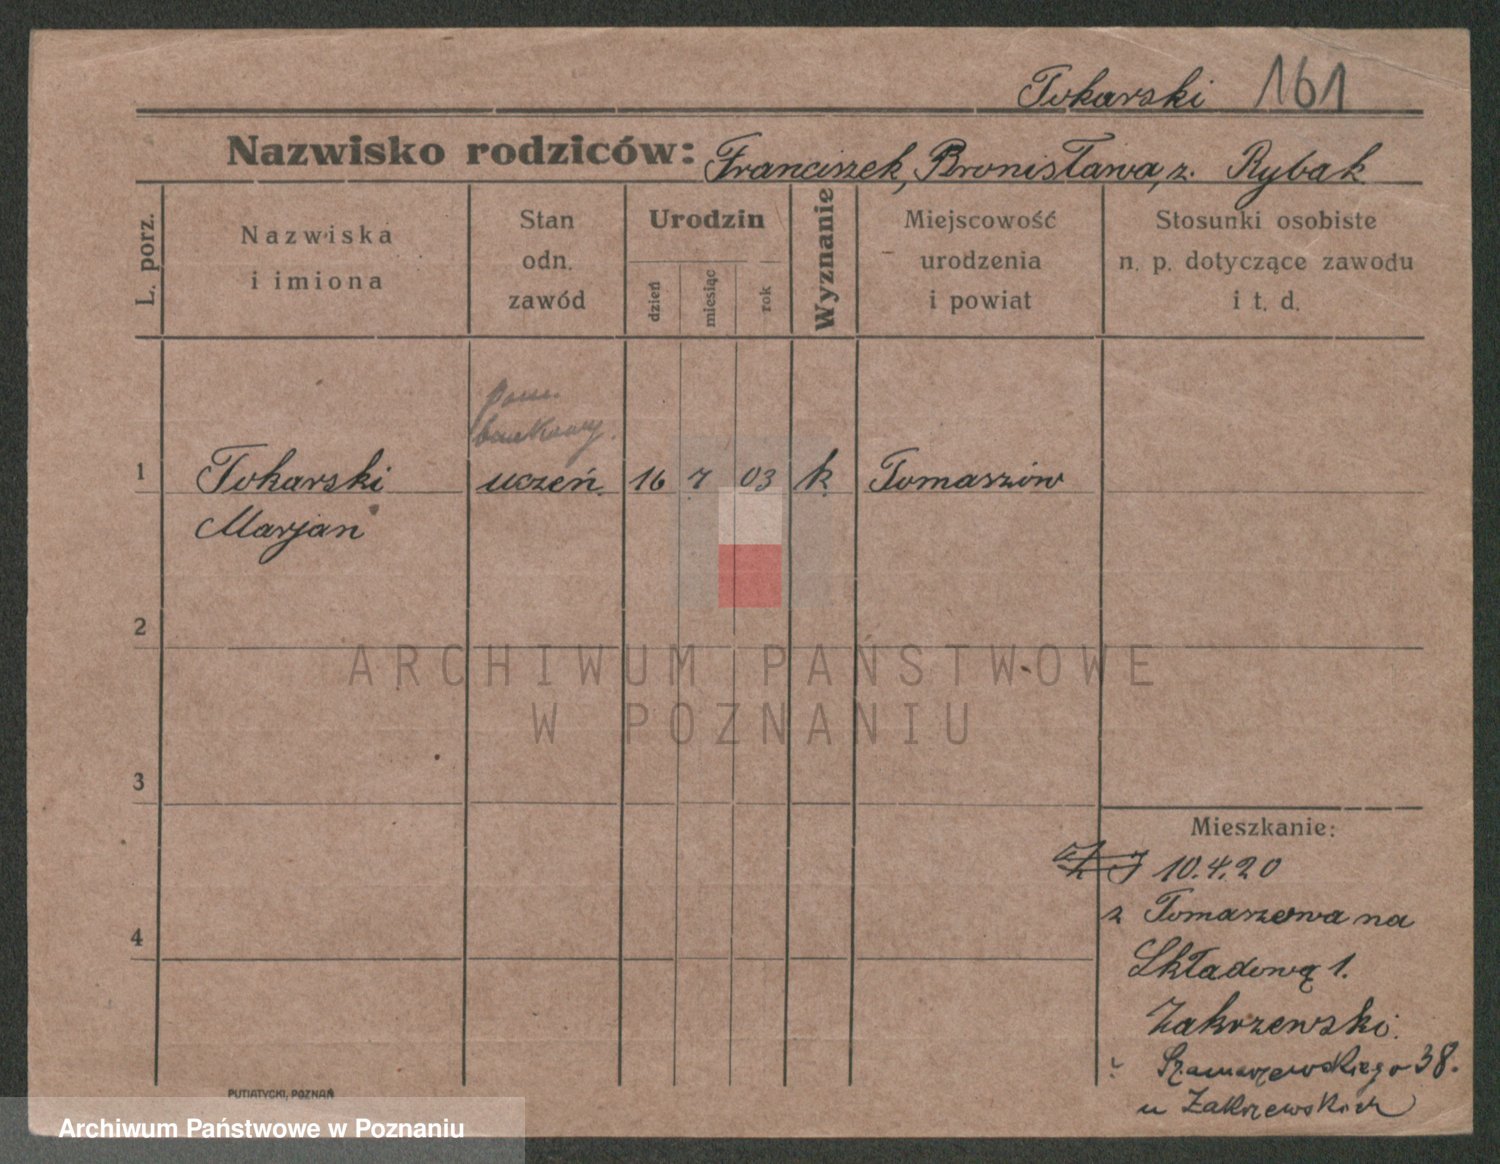 Tokarski 161
Nazwisko rodziców: Franciszek, Bronisława, z. Rybak
L. porz.
Nazwiska
i imiona
Stan
odn.
zawód
Urodzin
dzień
miesiąc
rok
Wyznanie
Miejscowość
urodzenia
i powiat
Stosunki osobiste
n. p. dotyczące zawodu
i t. d.
pom.
bankowy.
1 Tokarski uczeń. 16 7 03 k. Tomaszów
Marjan
2
3
4
Mieszkanie:
10.4.20
z Tomaszowa na
Składową 1.
Zakrzewski.
Szamarzewskiego 38.
u Zakrzewskich
PUTIATYCKI, POZNAŃ
ARCHIWUM PAŃSTWOWE
W POZNANIU
Archiwum Państwowe w Poznaniu